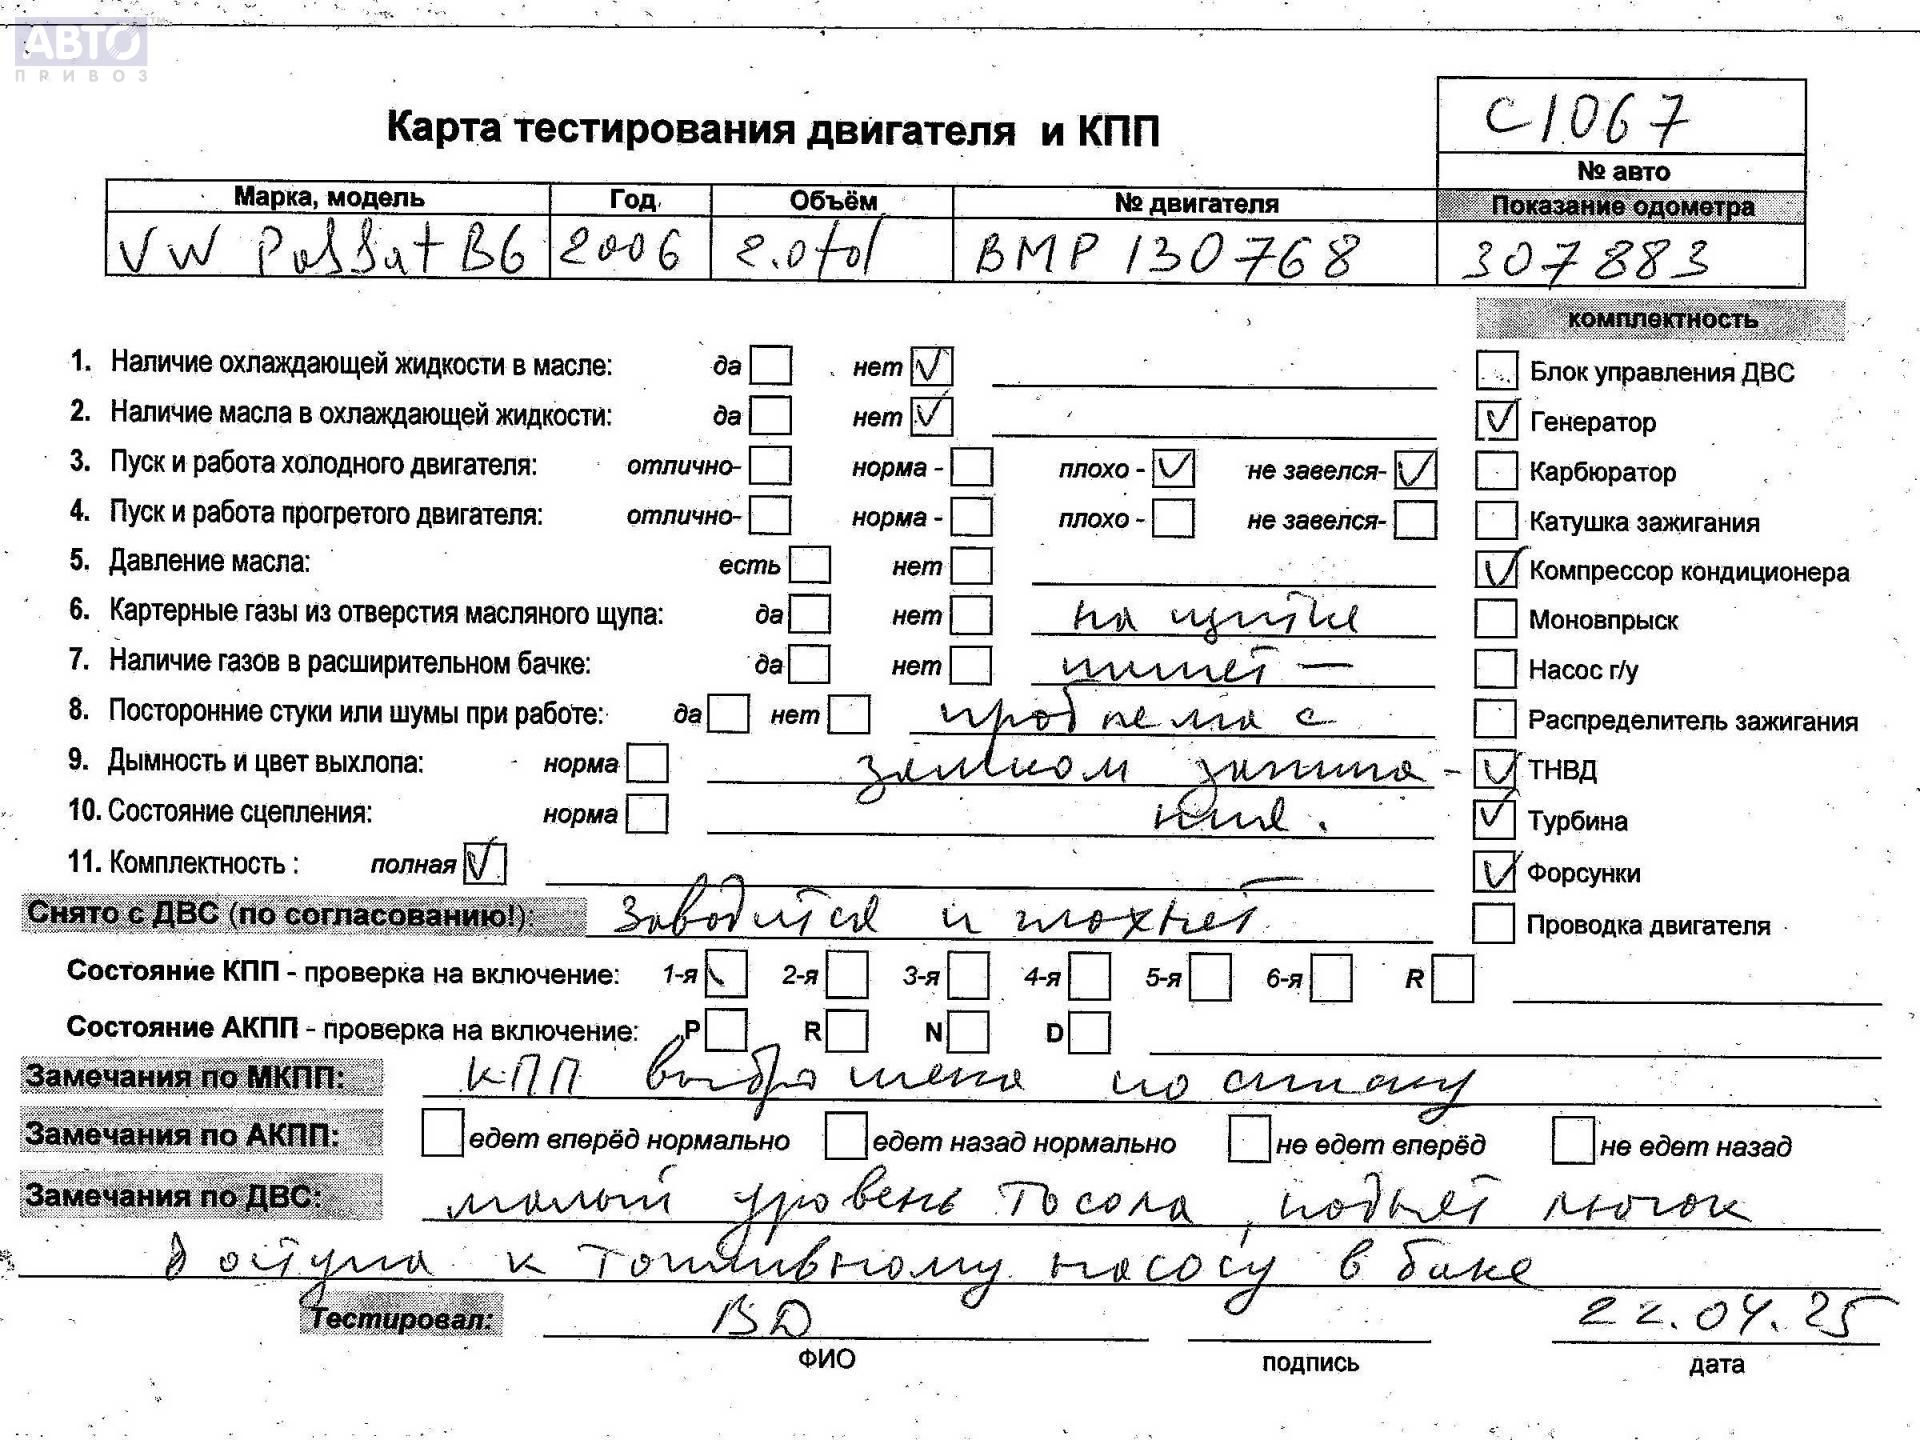 АВТО
ПРИВОЗ
С1067
Карта тестирования двигателя и КПП
№ авто
Марка, модель Год Объём № двигателя Показание одометра
VW Passat B6 2006 2.0tdi BMP 130768 307883
комплектность
1. Наличие охлаждающей жидкости в масле: да нет Блок управления ДВС
2. Наличие масла в охлаждающей жидкости: да нет Генератор
3. Пуск и работа холодного двигателя: отлично- норма - плохо - не завелся- Карбюратор
4. Пуск и работа прогретого двигателя: отлично- норма - плохо - не завелся- Катушка зажигания
5. Давление масла: есть нет Компрессор кондиционера
6. Картерные газы из отверстия масляного щупа: да нет на щитке Моновпрыск
7. Наличие газов в расширительном бачке: да нет пишет — Насос г/у
8. Посторонние стуки или шумы при работе: да нет проблема с Распределитель зажигания
9. Дымность и цвет выхлопа: норма замком зажига- ТНВД
10. Состояние сцепления: норма ния. Турбина
11. Комплектность : полная Форсунки
Снято с ДВС (по согласованию!): Заводится и глохнет Проводка двигателя
Состояние КПП - проверка на включение: 1-я 2-я 3-я 4-я 5-я 6-я R
Состояние АКПП - проверка на включение: P R N D
Замечания по МКПП: КПП выброшена по списку
Замечания по АКПП: едет вперёд нормально едет назад нормально не едет вперёд не едет назад
Замечания по ДВС: малый уровень тосола, поднят лючок
доступа к топливному насосу в баке
Тестировал: BD 22.04.25
ФИО подпись дата